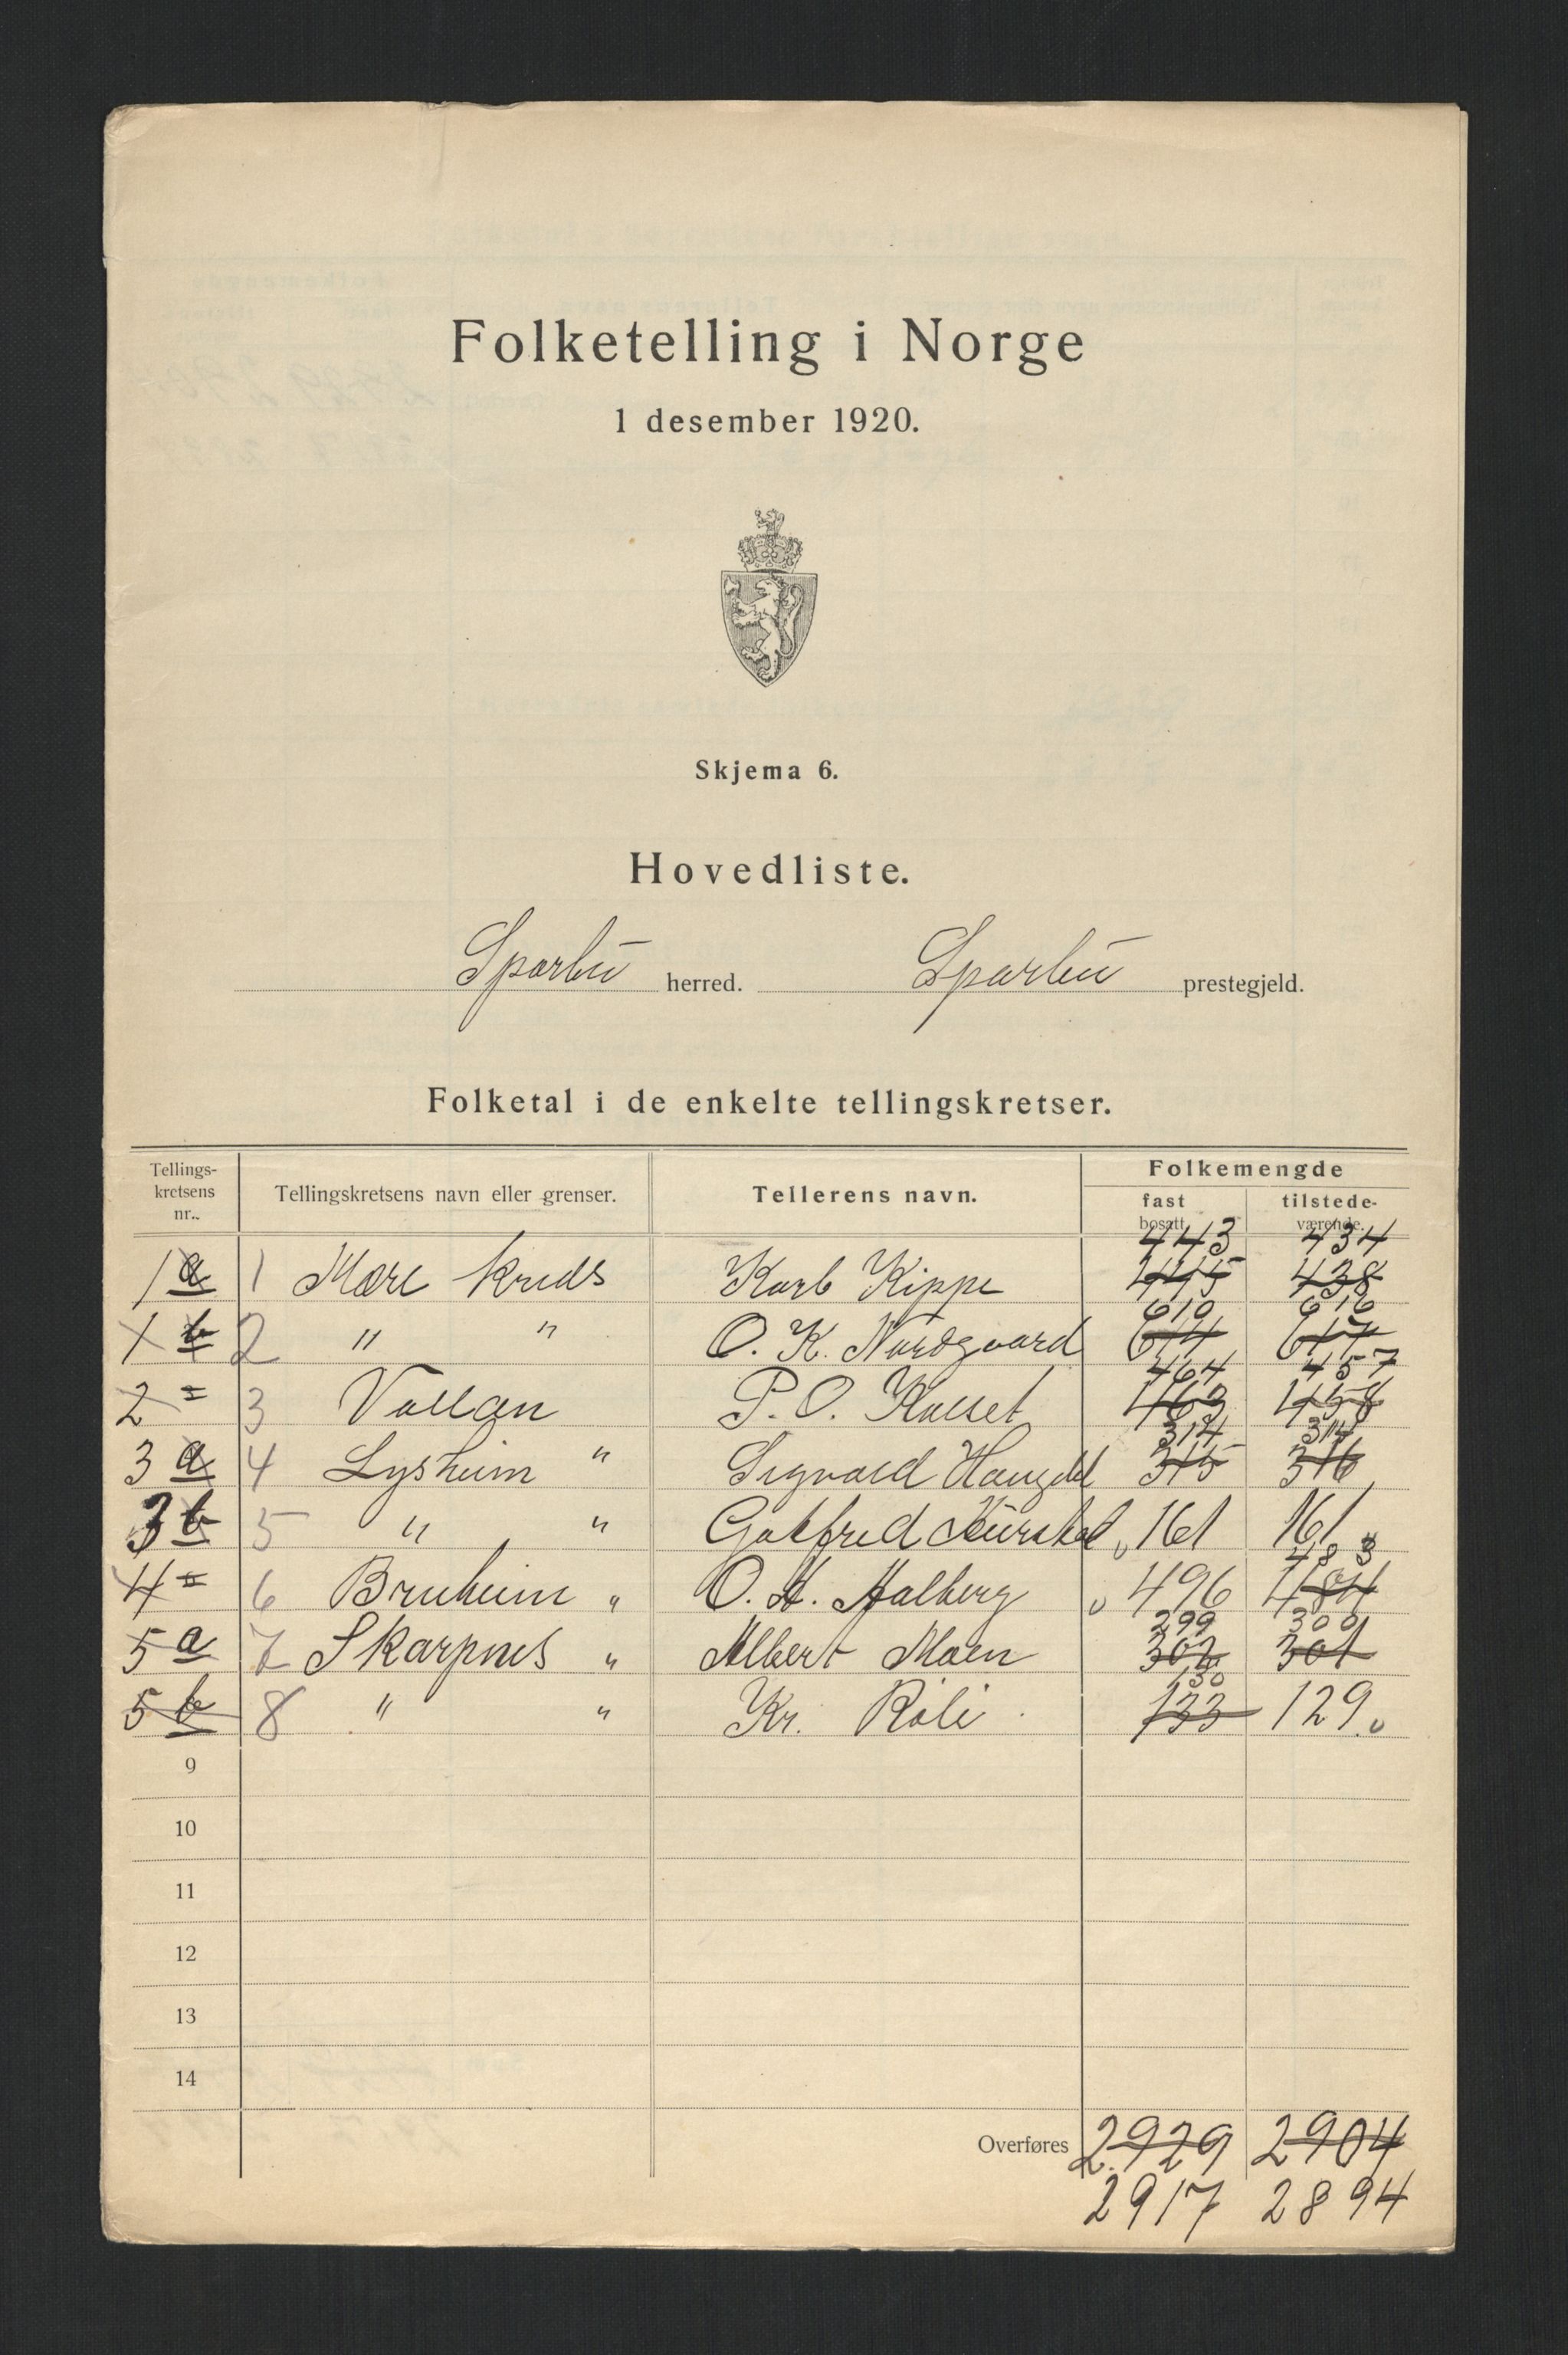 Folketelling i Norge
1 desember 1920.
Skjema 6.
Hovedliste.
Sparbu herred. Sparbu prestegjeld.
Folketal i de enkelte tellingskretser.
Tellings-
kretsens
nr..
Tellingskretsens navn eller grenser.
Tellerens navn.
Folkemengde
fast
bosatt.
tilstede-
værende.
443 434
1 a 1 Mære Kreds Karl Kippe 445 438
610 616
1 b 2 " " O. K. Nordgaard 614 617
464 457
2 = 3 Vollan P. O. 463 458
314 314
3 a 4 Lysheim " Sigvald 315 316
3 b 5 " " Gotfred 161 161
483
4 = 6 Bruheim " O. A. Aalberg 496 484
299 300
5 a 7 Skarpnes " Albert Moen 302 301
130
5 b 8 " " Kr. Roli 133 129
9
10
11
12
13
14
Overføres 2929 2904
2917 2894